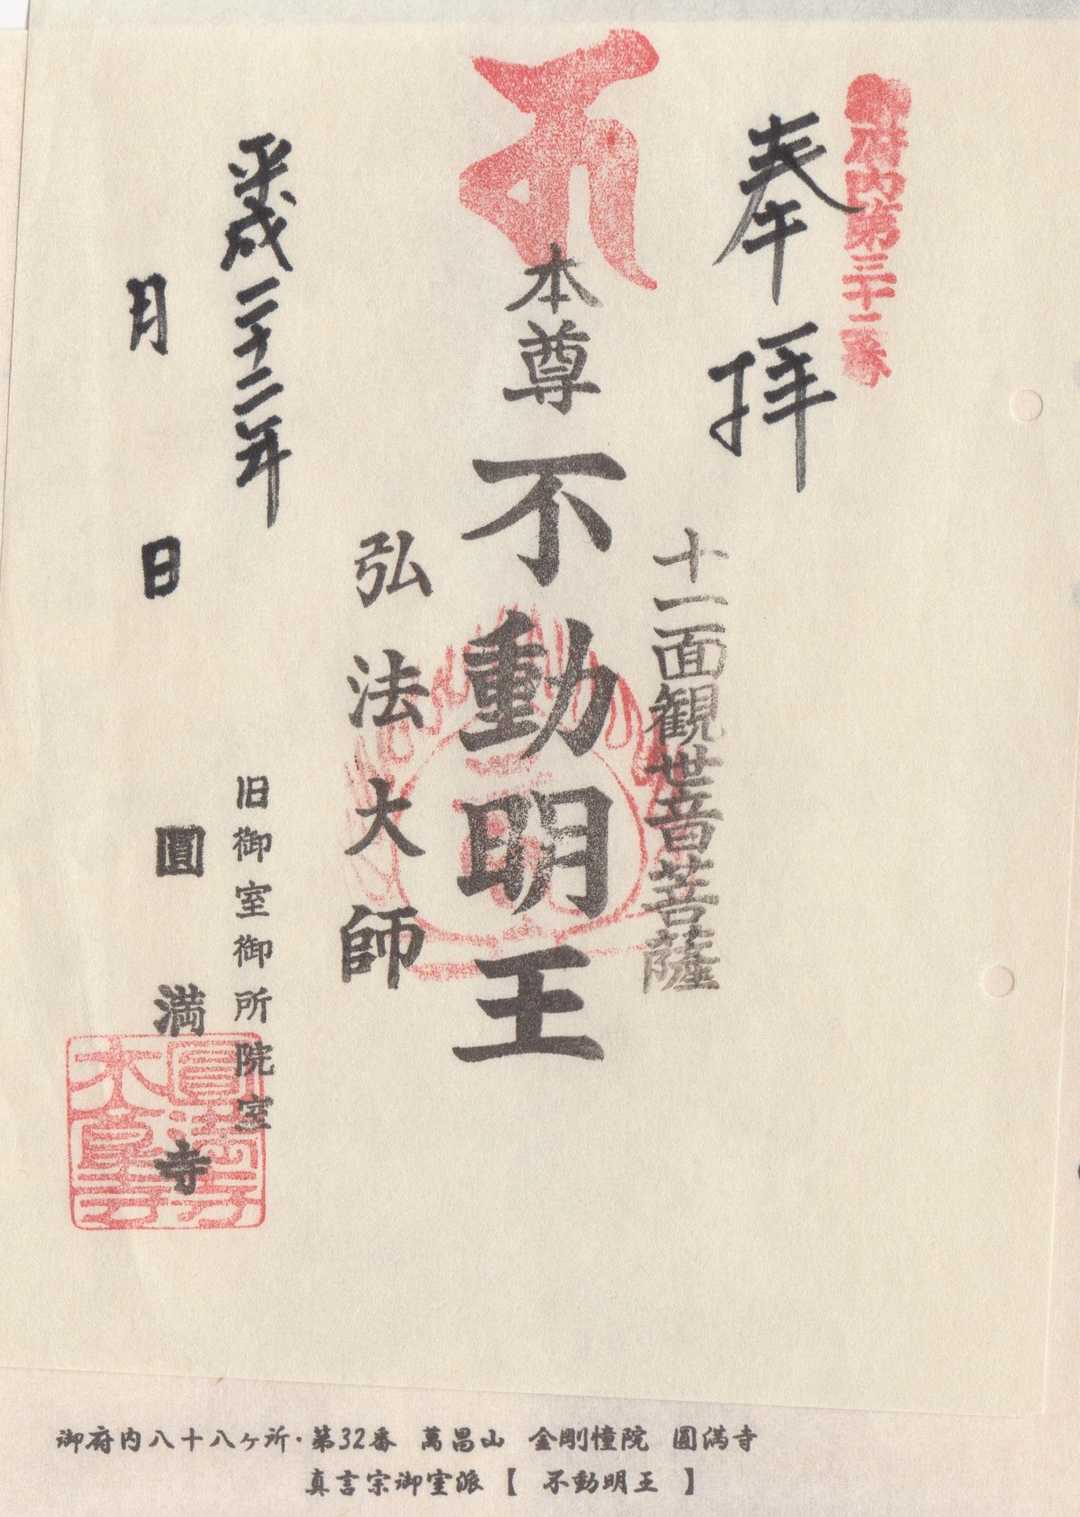 御府内第三十二番
奉拝
十一面観世音菩薩
本尊不動明王
弘法大師
平成二十二年
月日
旧御室御所院室
圓満寺
圓満寺
御府内八十八ヶ所・第32番 萬昌山 金剛憧院 圓満寺
真言宗御室派【 不動明王 】